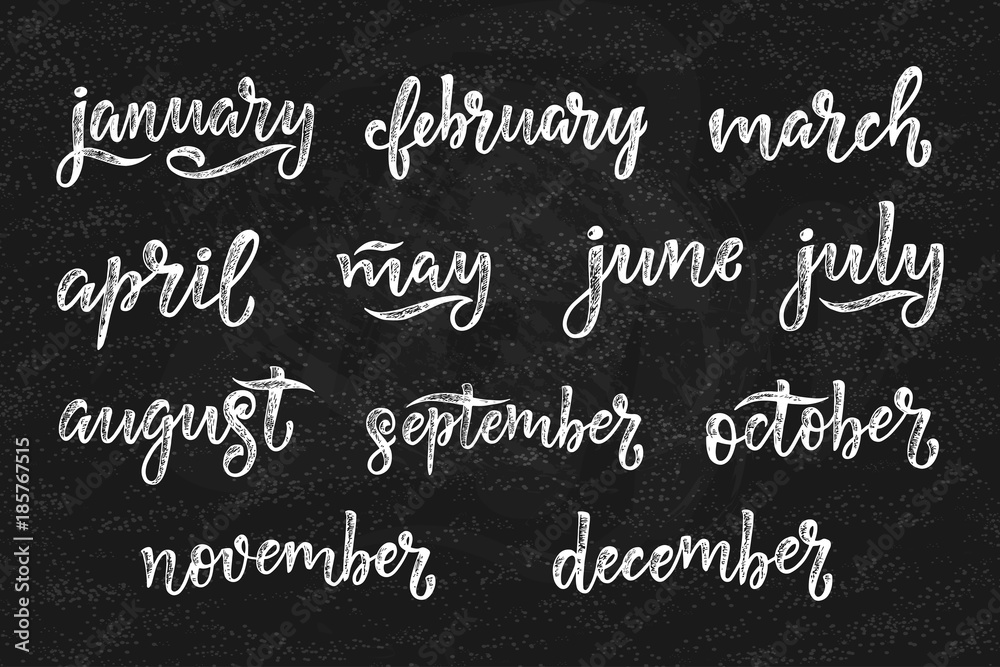 january february march
april may june july
august september october
november december
Adobe Stock | #185767515